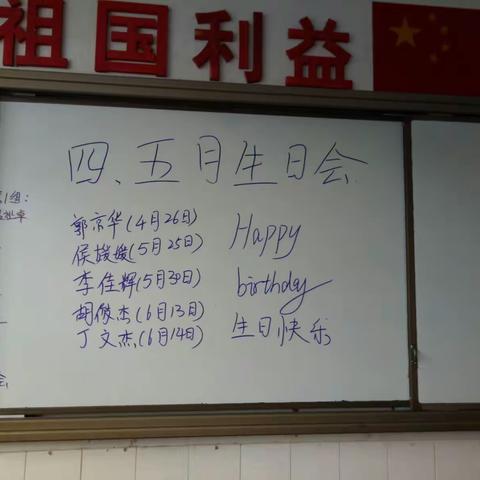 祖国利益
四、五月生日会
郭京华(4月26日)
侯媛媛(5月25日)
李佳辉(5月30日)
胡俊杰(6月13日)
丁文杰(6月14日)
Happy
birthday
生日快乐
组: